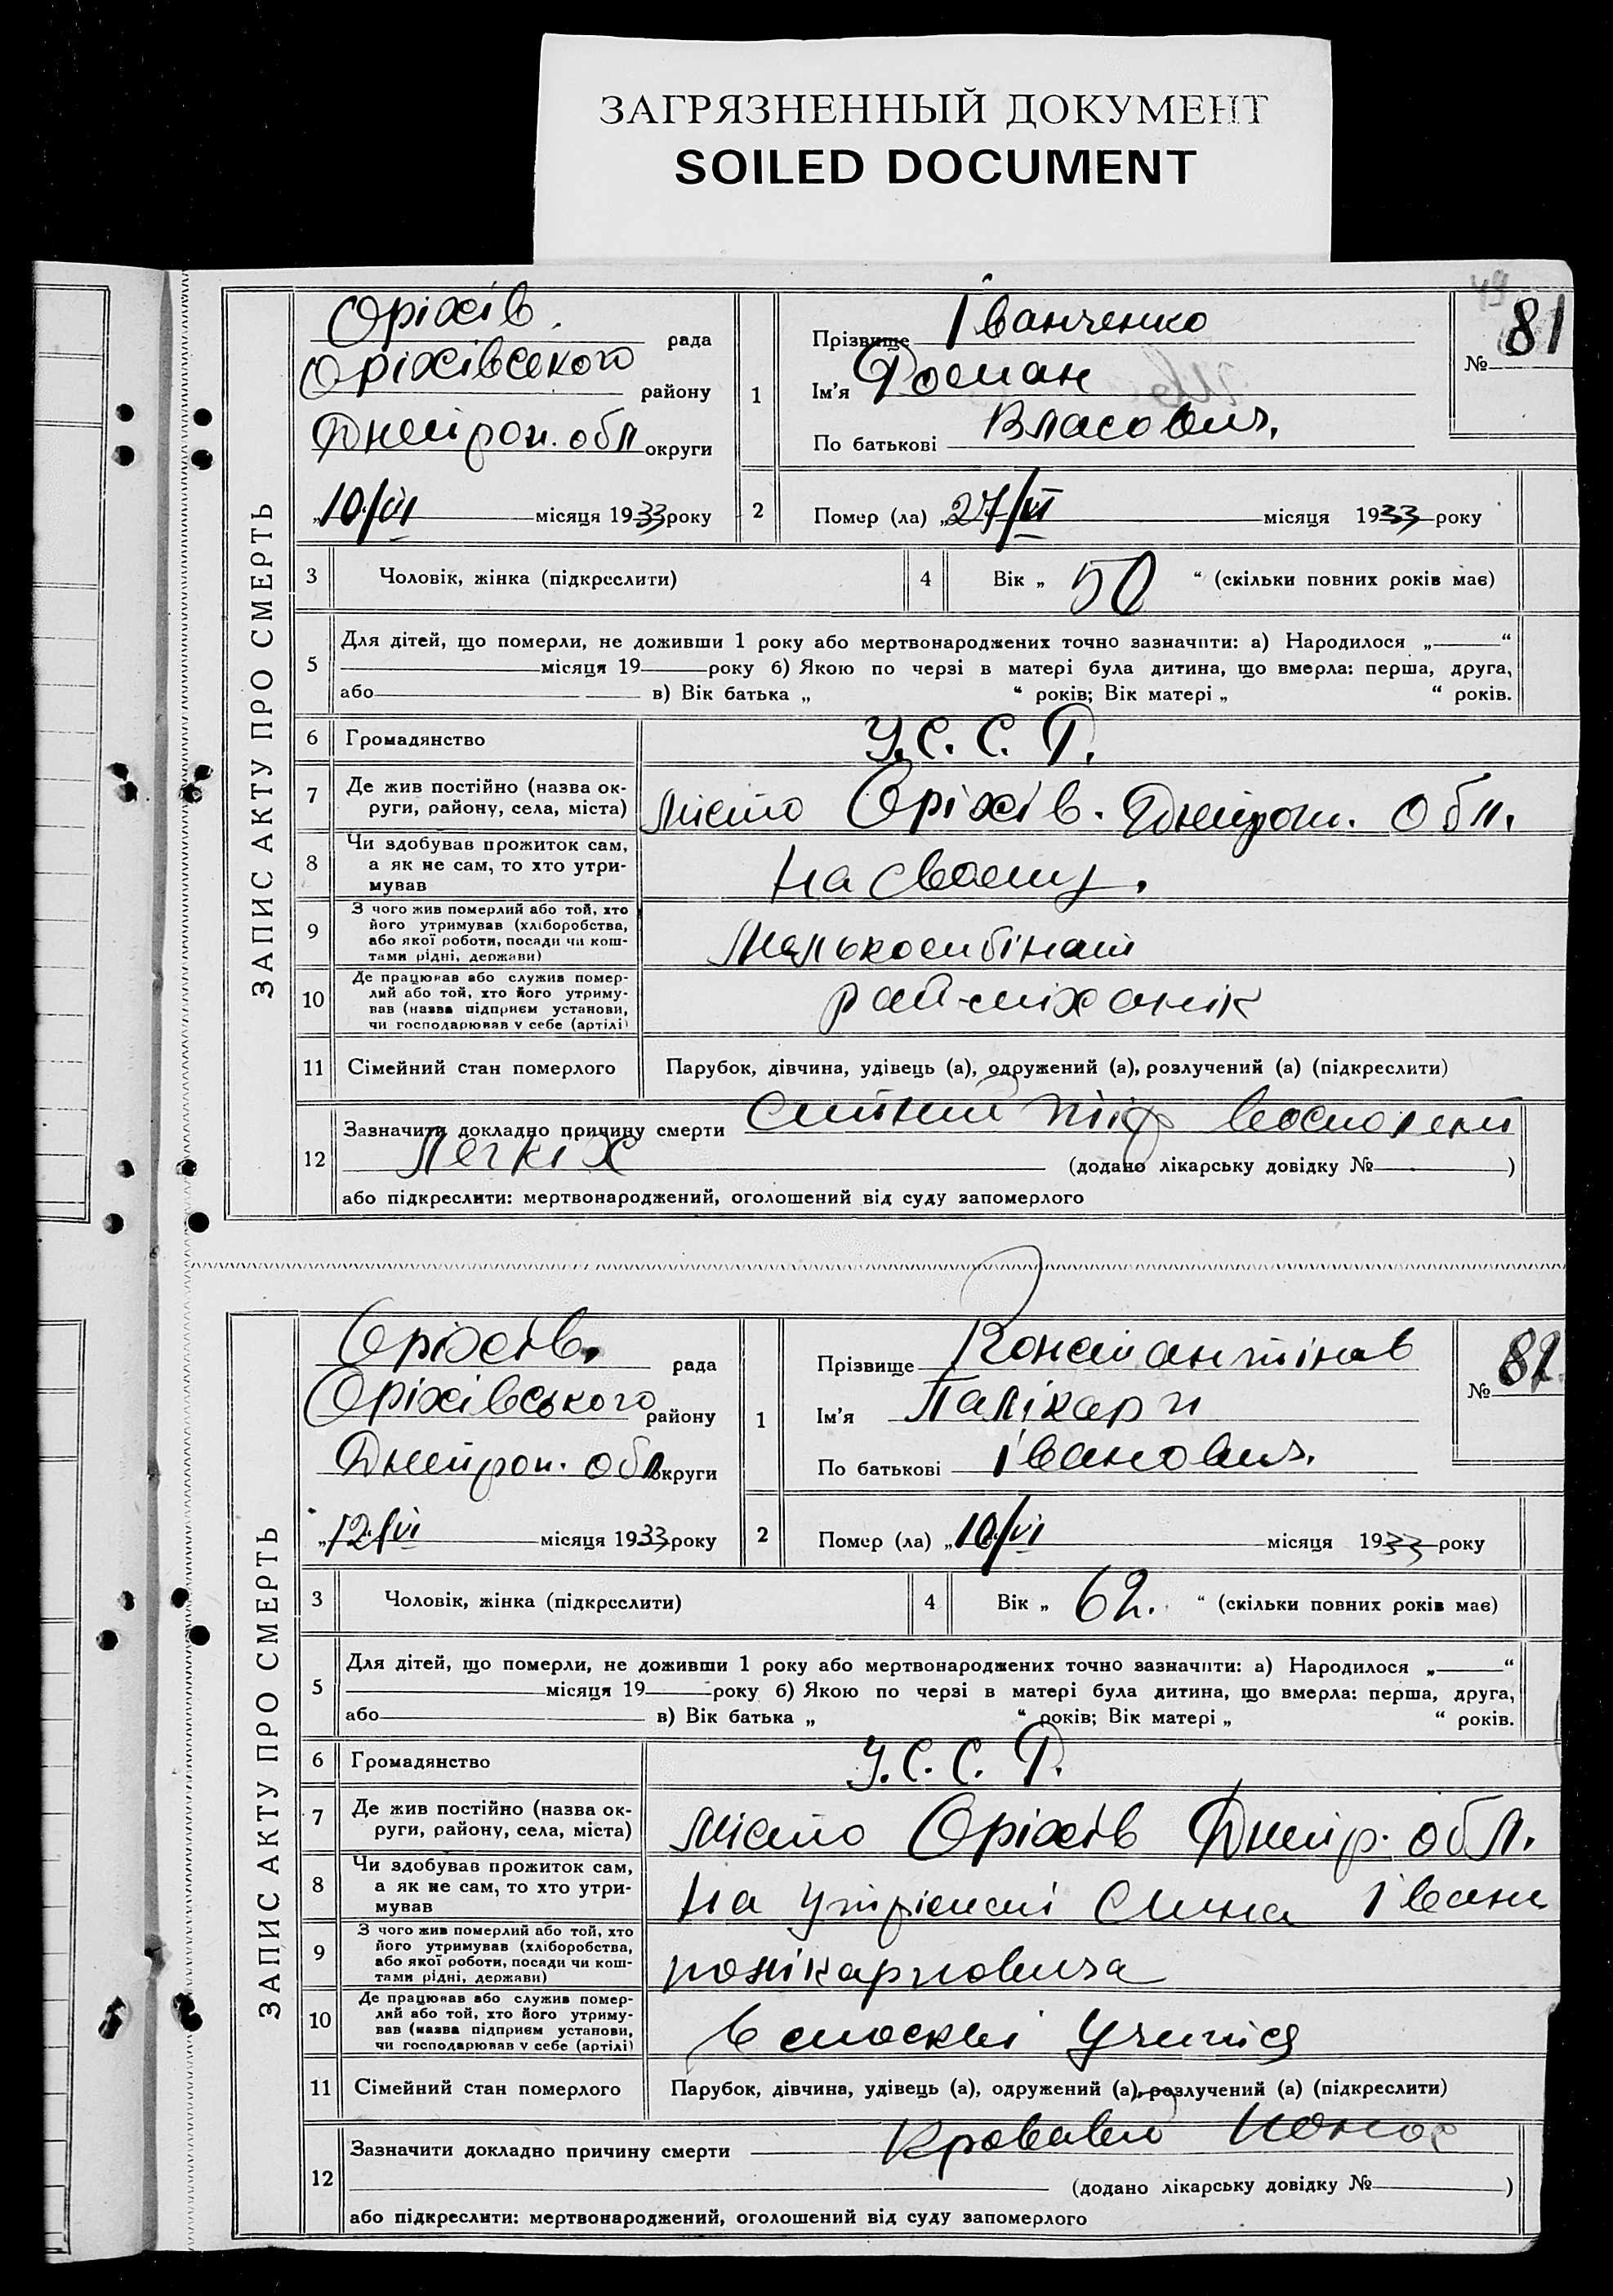 ЗАГРЯЗНЕННЫЙ ДОКУМЕНТ
SOILED DOCUMENT
ЗАПИС АКТУ ПРО СМЕРТЬ
Оріхів. рада
Оріхівського району
Днепроп. обл округи
„10/VII місяця 1933 року
49
№ 81
1
Прізвище Іванченко
Ім'я Роман
По батькові Власович.
2 Помер (ла) „27/VI місяця 1933 року
3 Чоловік, жінка (підкреслити)
4 Вік „ 50 “ (скільки повних років має)
5 Для дітей, що померли, не доживши 1 року або мертвонароджених точно зазначити: а) Народилося „ “
місяця 19 року б) Якою по черзі в матері була дитина, що вмерла: перша, друга,
або в) Вік батька „ “ років; Вік матері „ “ років.
6 Громадянство У.С.С.Р.
7 Де жив постійно (назва ок-
руги, району, села, міста) місто Оріхів. Днепроп. Обл.
8 Чи здобував прожиток сам,
а як не сам, то хто утри-
мував
на своєму.
9 З чого жив померлий або той, хто
його утримував (хліборобства,
або якої роботи, посади чи кош-
тами рідні, держави)
10 Де працював або служив помер-
лий або той, хто його утриму-
вав (назва підприєм установи,
чи господарював у себе (артілі)
рай-міханік
11 Сімейний стан померлого Парубок, дівчина, удівець (а), одружений (а), розлучений (а) (підкреслити)
12 Зазначити докладно причину смерти тіф
легкіх (додано лікарську довідку № )
або підкреслити: мертвонароджений, оголошений від суду запомерлого
ЗАПИС АКТУ ПРО СМЕРТЬ
Оріхів. рада
Оріхівського району
Днепроп. обл округи
„12/VI місяця 1933 року
№ 82
1
Прізвище Констянтінов
Ім'я Палікарп
По батькові Іванович.
2 Помер (ла) „10/VI місяця 1933 року
3 Чоловік, жінка (підкреслити)
4 Вік „ 62. “ (скільки повних років має)
5 Для дітей, що померли, не доживши 1 року або мертвонароджених точно зазначити: а) Народилося „ “
місяця 19 року б) Якою по черзі в матері була дитина, що вмерла: перша, друга,
або в) Вік батька „ “ років; Вік матері „ “ років.
6 Громадянство У.С.С.Р.
7 Де жив постійно (назва ок-
руги, району, села, міста) місто Оріхів Днепр. обл.
8 Чи здобував прожиток сам,
а як не сам, то хто утри-
мував
на сина Івана
9 З чого жив померлий або той, хто
його утримував (хліборобства,
або якої роботи, посади чи кош-
тами рідні, держави)
полікарповича
10 Де працював або служив помер-
лий або той, хто його утриму-
вав (назва підприєм установи,
чи господарював у себе (артілі)
в москві учитця
11 Сімейний стан померлого Парубок, дівчина, удівець (а), одружений (а), розлучений (а) (підкреслити)
12 Зазначити докладно причину смерти Кровавий понос
(додано лікарську довідку № )
або підкреслити: мертвонароджений, оголошений від суду запомерлого